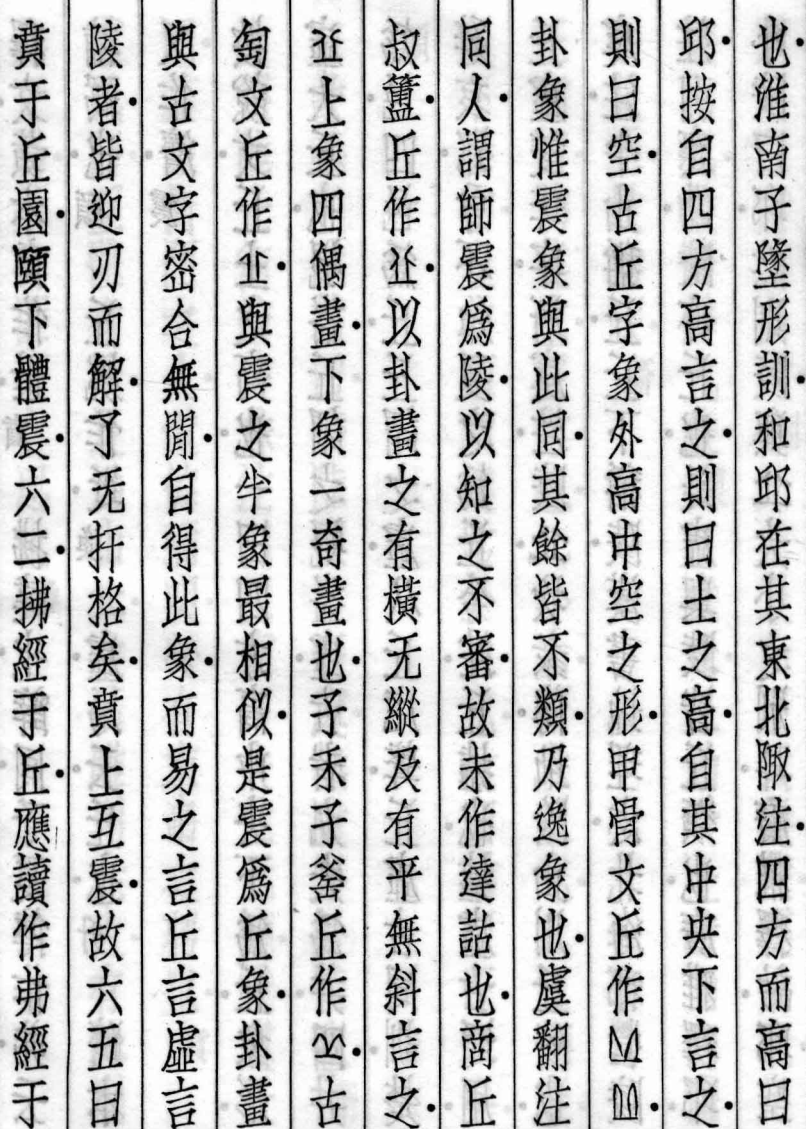 也淮南子墬形訓和邱在其東北陬注四方而高曰
邱按自四方高言之則曰土之高自其中央下言之
則曰空古丘字象外高中空之形甲骨文丘作
卦象惟震象與此同其餘皆不類乃逸象也虞翻注
同人謂師震爲陵以知之不審故未作達詁也商丘
叔簠丘作以卦畫之有橫无縱及有平無斜言之
上象四偶畫下象一奇畫也子禾子釜丘作古
匋文丘作與震之半象最相似是震爲丘象卦畫
與古文字密合無閒自得此象而易之言丘言虛言
陵者皆迎刃而解了无扞格矣賁上互震故六五曰
賁于丘園頤下體震六二拂經于丘應讀作弗經于